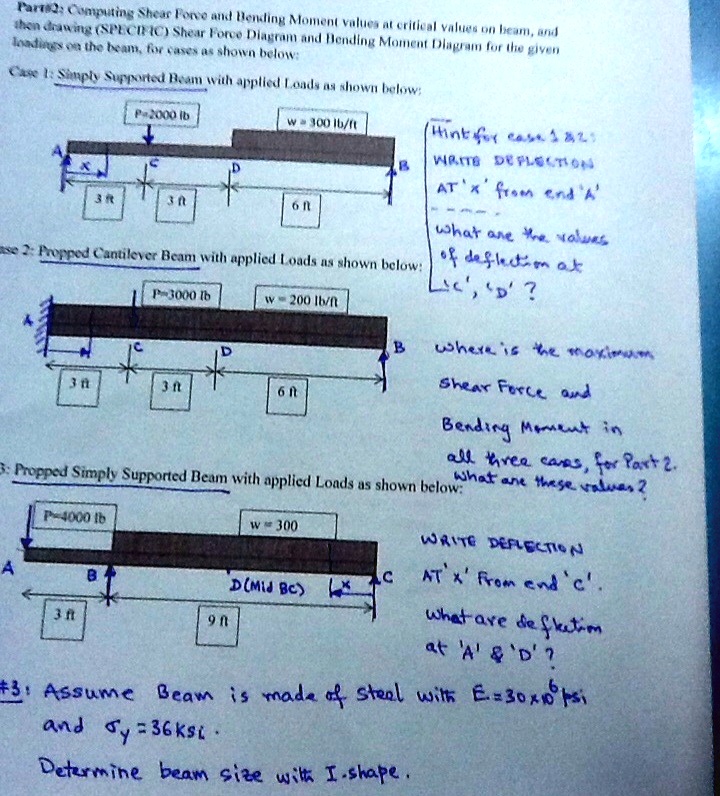 Part#2: Computing Shear Force and Bending Moment values at critical values on beam, and
then drawing (SPECIFIC) Shear Force Diagram and Bending Moment Diagram for the given
loadings on the beam, for cases as shown below:
Case 1: Simply Supported Beam with applied Loads as shown below:
P=2000 lb
w = 300 lb/ft
A
x
C
D
B
3 ft
3 ft
6 ft
Hint for case 1 & 2:
WRITE DEFLECTION
AT 'x' from end 'A'
What are the values
of deflection at
'C', 'D' ?
ase 2: Propped Cantilever Beam with applied Loads as shown below:
P=3000 lb
w = 200 lb/ft
A
C
D
B
3 ft
3 ft
6 ft
where is the maximum
Shear Force and
Bending Moment in
all three cases, for Part 2.
What are these values?
3: Propped Simply Supported Beam with applied Loads as shown below:
P=4000 lb
w = 300
A
B
D (Mid BC)
x
C
3 ft
9 ft
WRITE DEFLECTION
AT 'x' From end 'c'.
What are deflection
at 'A' & 'D' ?
#3: Assume Beam is made of Steel with E=30x10⁶ psi
and σy = 36ksi.
Determine beam size with I-shape.